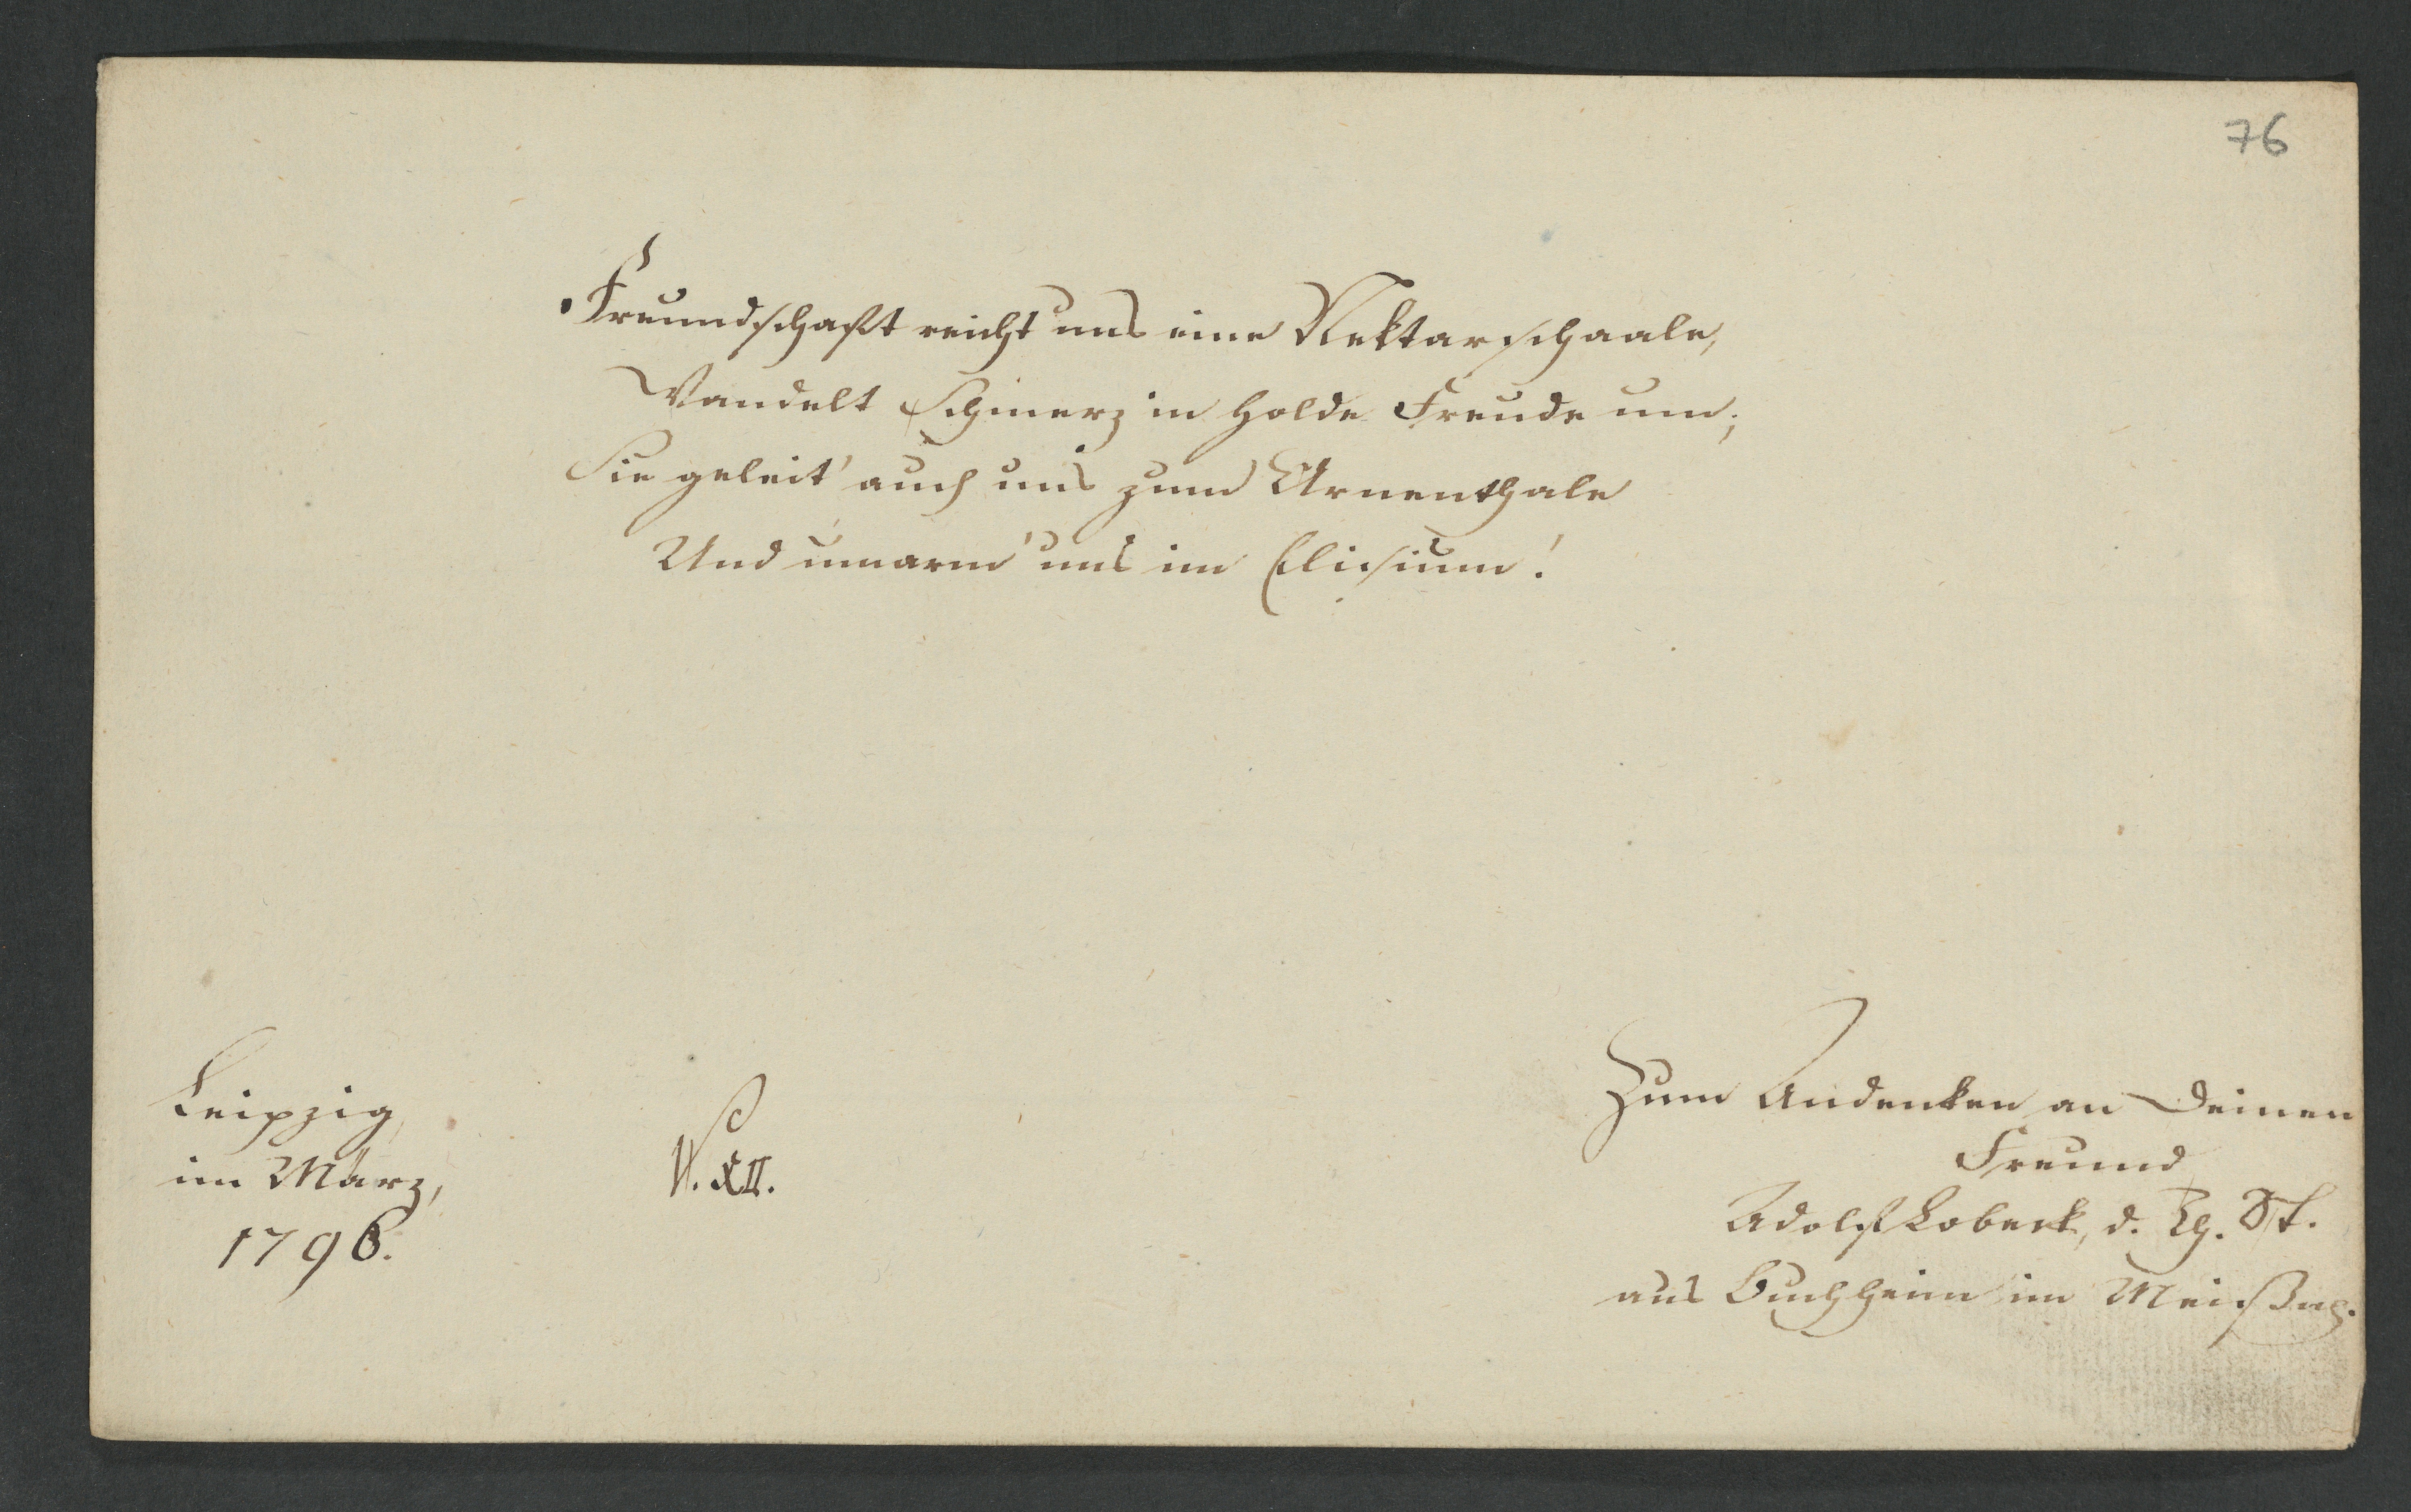 76
Freundschaft reicht uns eine Nektarschaale,
Wandelt Schmerz in holde Freude um;
Sie geleit' auch uns zum Urnenthale
Und umarm' uns im Elisium!
Leipzig,
im März,
1796.
V. XII.
Zum Andenken an Deinen
Freund
Adolf Lobeck, d. Th. St.
aus Buchheim im Meißn.